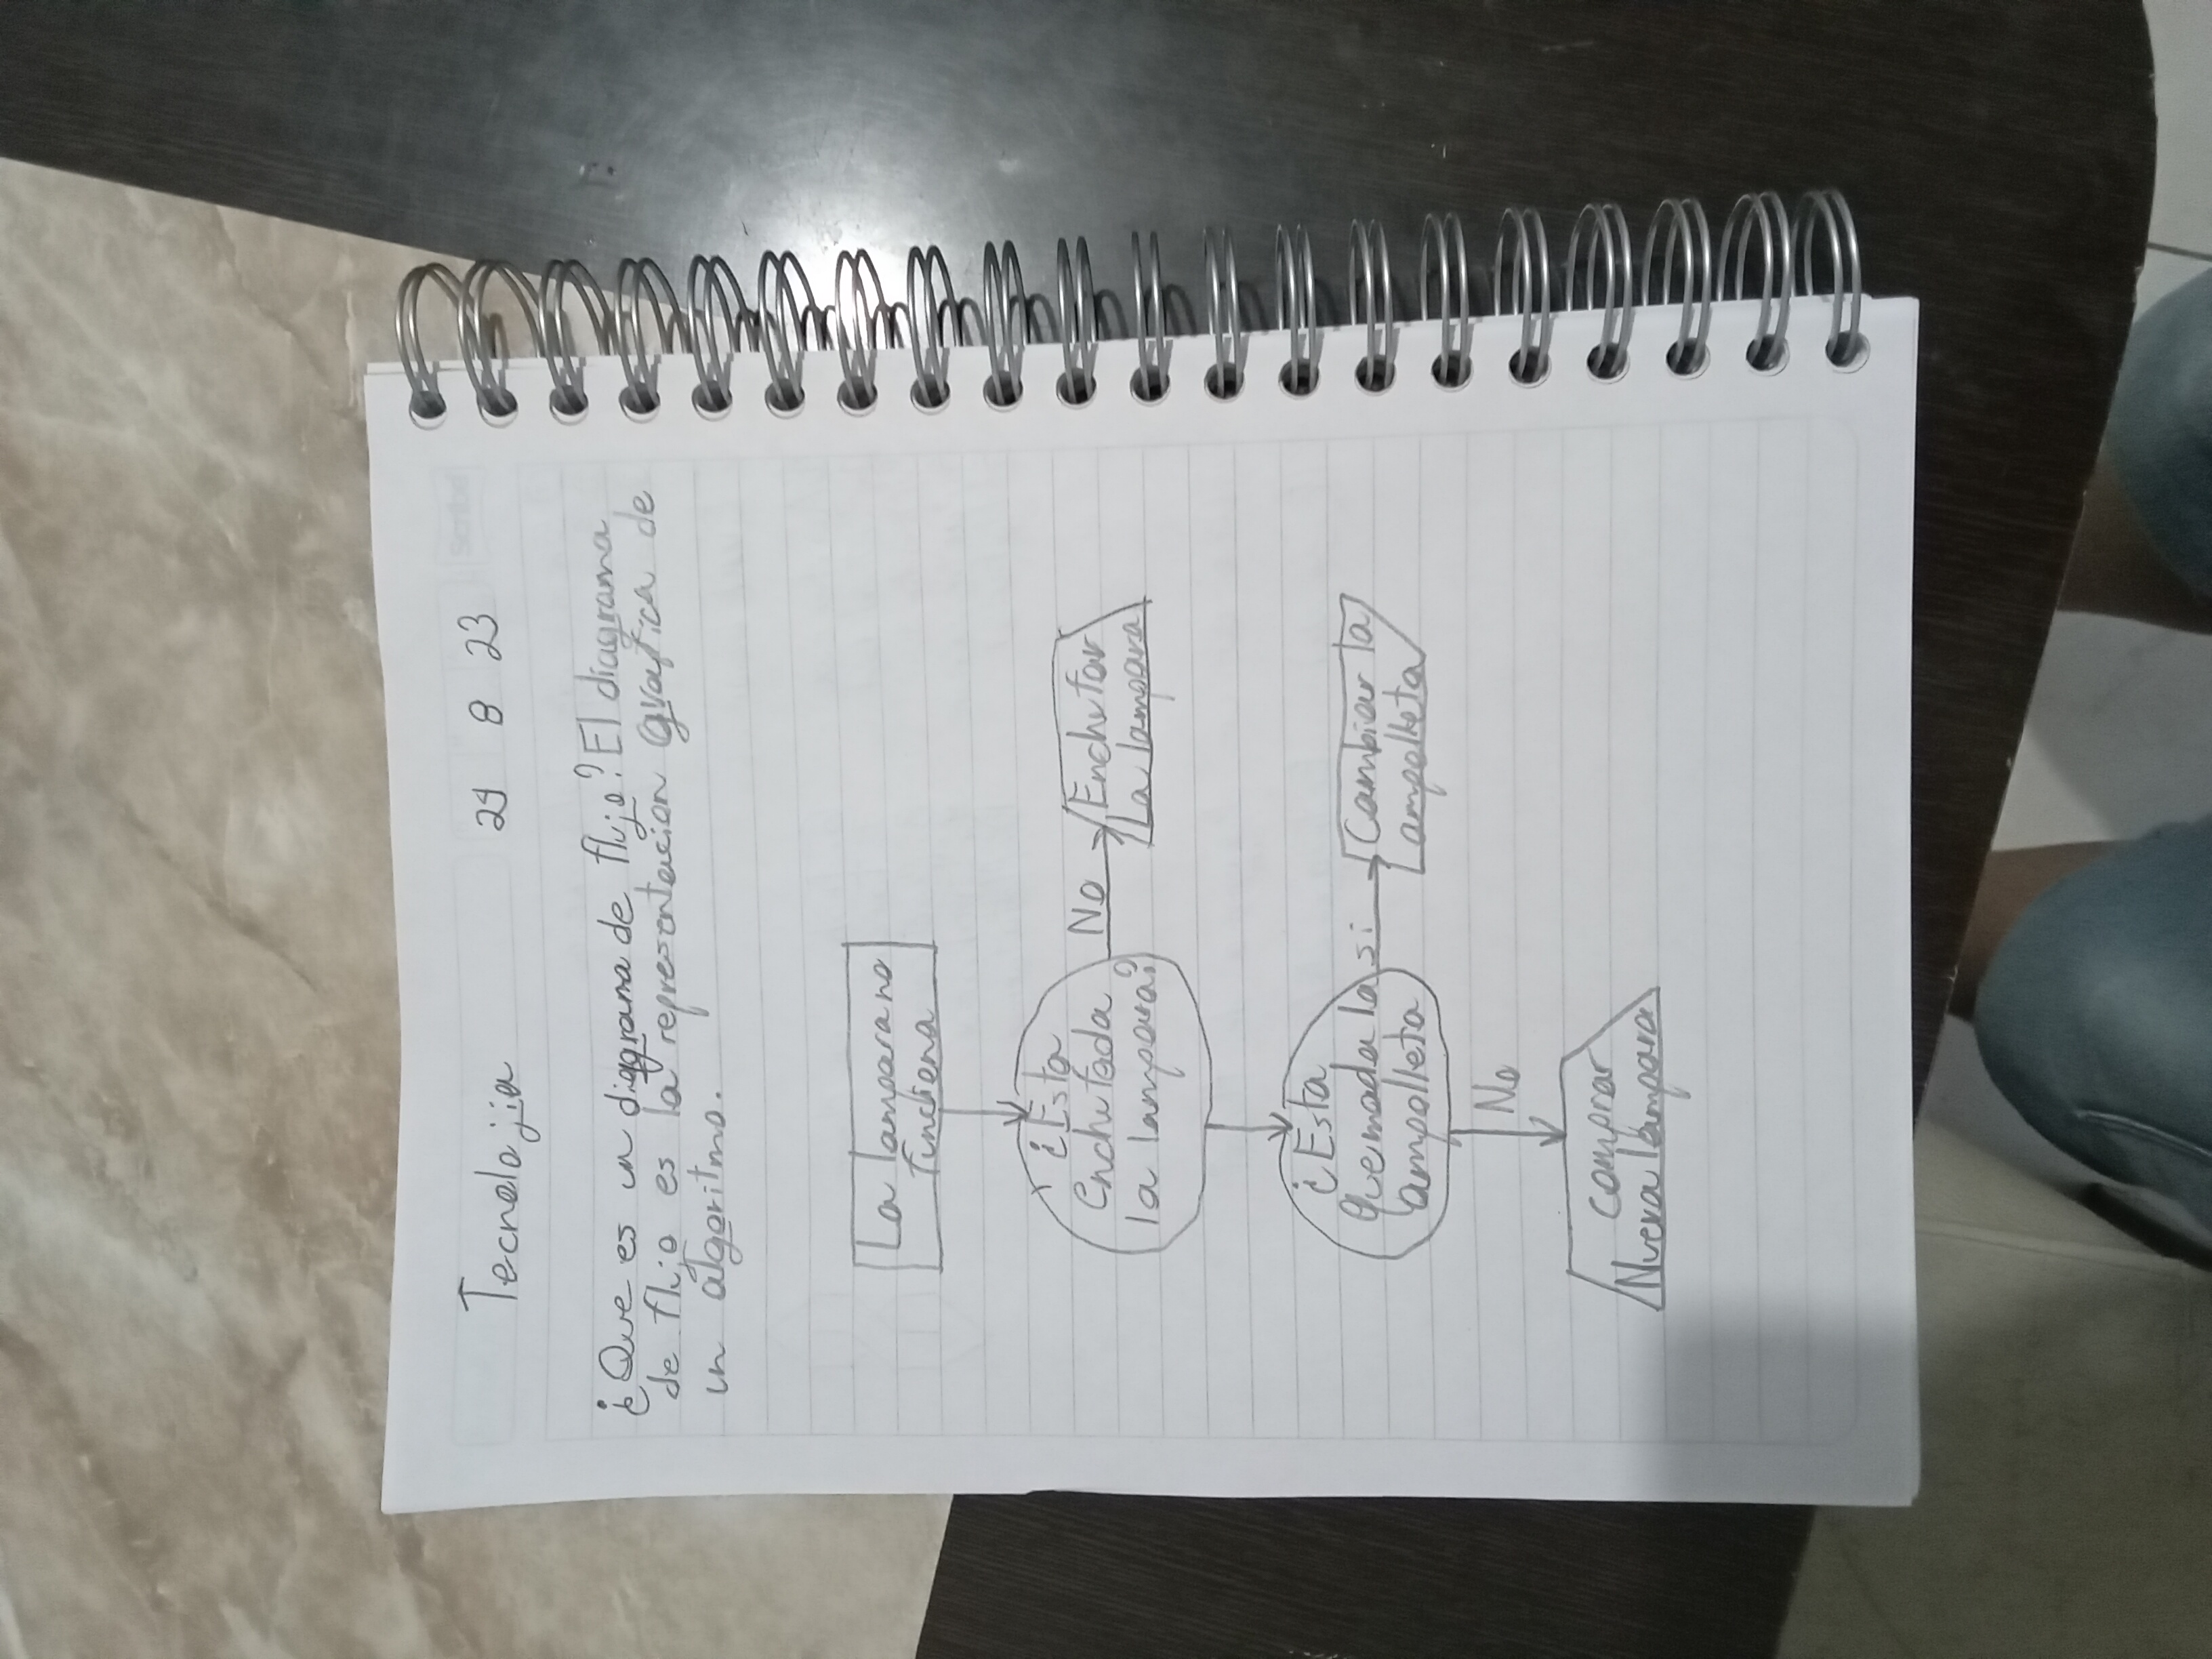 Tecnolojia 24 8 23
Scribe
¿Que es un diagrama de flujo? El diagrama
de flijo es la representacion grafica de
un algoritmo.
La lampara no
funciona
¿Esta
Enchufada
la lampara?
No
Enchufar
La lampara
¿Esta
quemada la
ampolleta
si
Cambiar la
ampolleta
No
comprar
Nueva lampara